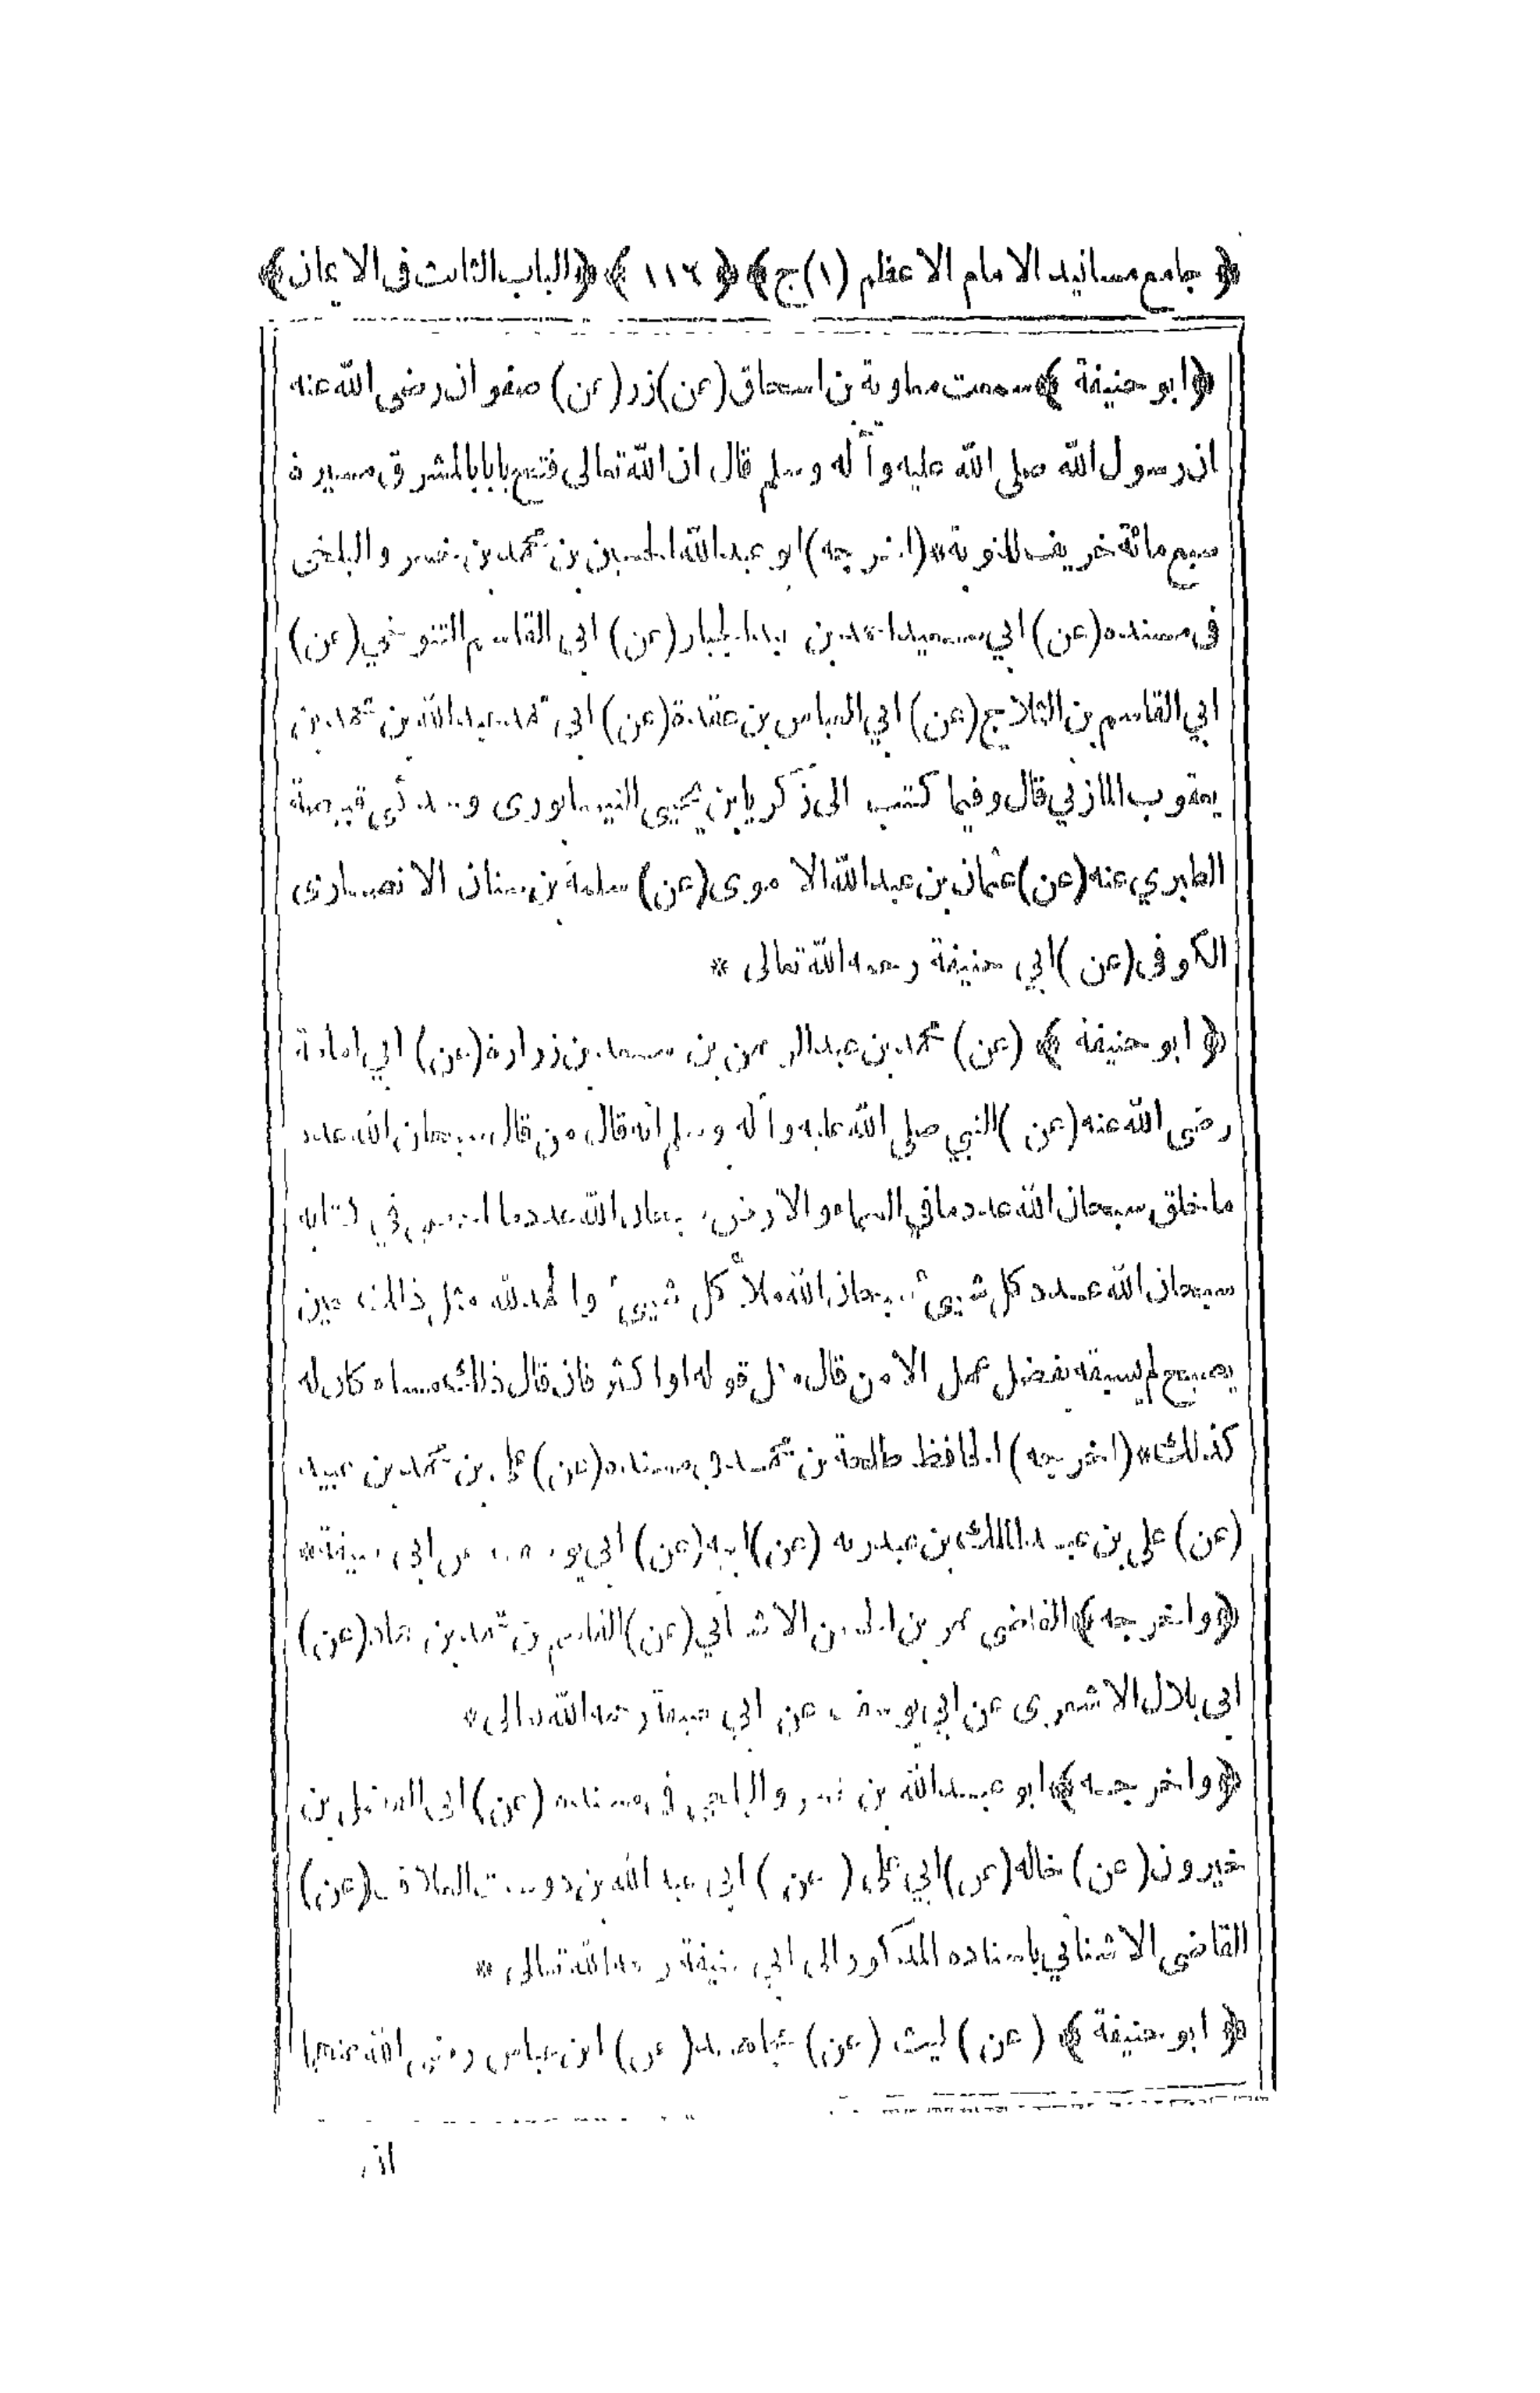 ﴿ جامع مسانيد الامام الاعظم (١) ج ﴾ ﴿ ١١٦ ﴾ ﴿ الباب الثالث فى الايمان ﴾
﴿ ابو حنيفة ﴾ سمعت معاوية بن اسحاق (عن) زر (عن) صفوان رضى الله عنه
ان رسول الله صلى الله عليه وآله وسلم قال ان الله تعالى فتح بابا بالمشرق مسيرة
سبع مائة خريف للتوبة * (اخرجه) ابو عبد الله الحسين بن محمد بن خسرو البلخى
فى مسنده (عن) ابي سعيد احمد بن عبد الجبار (عن) ابى القاسم التنوخي (عن)
ابي القاسم بن الثلاج (عن) ابي العباس بن عقدة (عن) ابى محمد عبد الله بن محمد بن
يعقوب المازني قال وفيما كتب الى زكريا بن يحيى النيسابورى وحدثنى قبيصة
الطبري عنه (عن) عثمان بن عبد الله الاموى (عن) سلمة بن سنان الانصارى
الكوفى (عن) ابي حنيفة رحمه الله تعالى *
﴿ ابو حنيفة ﴾ (عن) محمد بن عبد الرحمن بن سعد بن زرارة (عن) ابي امامة
رضى الله عنه (عن) النبي صلى الله عليه وآله وسلم انه قال من قال سبحان الله عدد
ما خلق سبحان الله عدد ما في السماء والارض سبحان الله عدد ما احصى في كتابه
سبحان الله عدد كل شيىء سبحان الله ملأ كل شيىء والحمد لله مثل ذالك حين
يصبح لم يسبقه بفضل عمل الا من قال مثل قوله او اكثر فان قال ذلك مساء كان له
كذلك * (اخرجه) الحافظ طلحة بن محمد فى مسنده (عن) على بن محمد بن عبيد
(عن) على بن عبد الملك بن عبد ربه (عن) ابيه (عن) ابى يوسف عن ابى حنيفة *
﴿ واخرجه ﴾ القاضى عمر بن الحسن الاشنانى (عن) القاسم بن محمد بن حماد (عن)
ابى بلال الاشعرى عن ابي يوسف عن ابي حنيفة رحمه الله تعالى *
﴿ واخرجه ﴾ ابو عبد الله بن خسرو البلخي في مسنده (عن) ابى الفضل بن
خيرون (عن) خاله (عن) ابي على (عن) ابى عبد الله بن دوست العلاف (عن)
القاضى الاشناني باسناده المذكور الى ابي حنيفة رحمه الله تعالى *
﴿ ابو حنيفة ﴾ (عن) ليث (عن) مجاهد (عن) ابن عباس رضى الله عنهما
ان